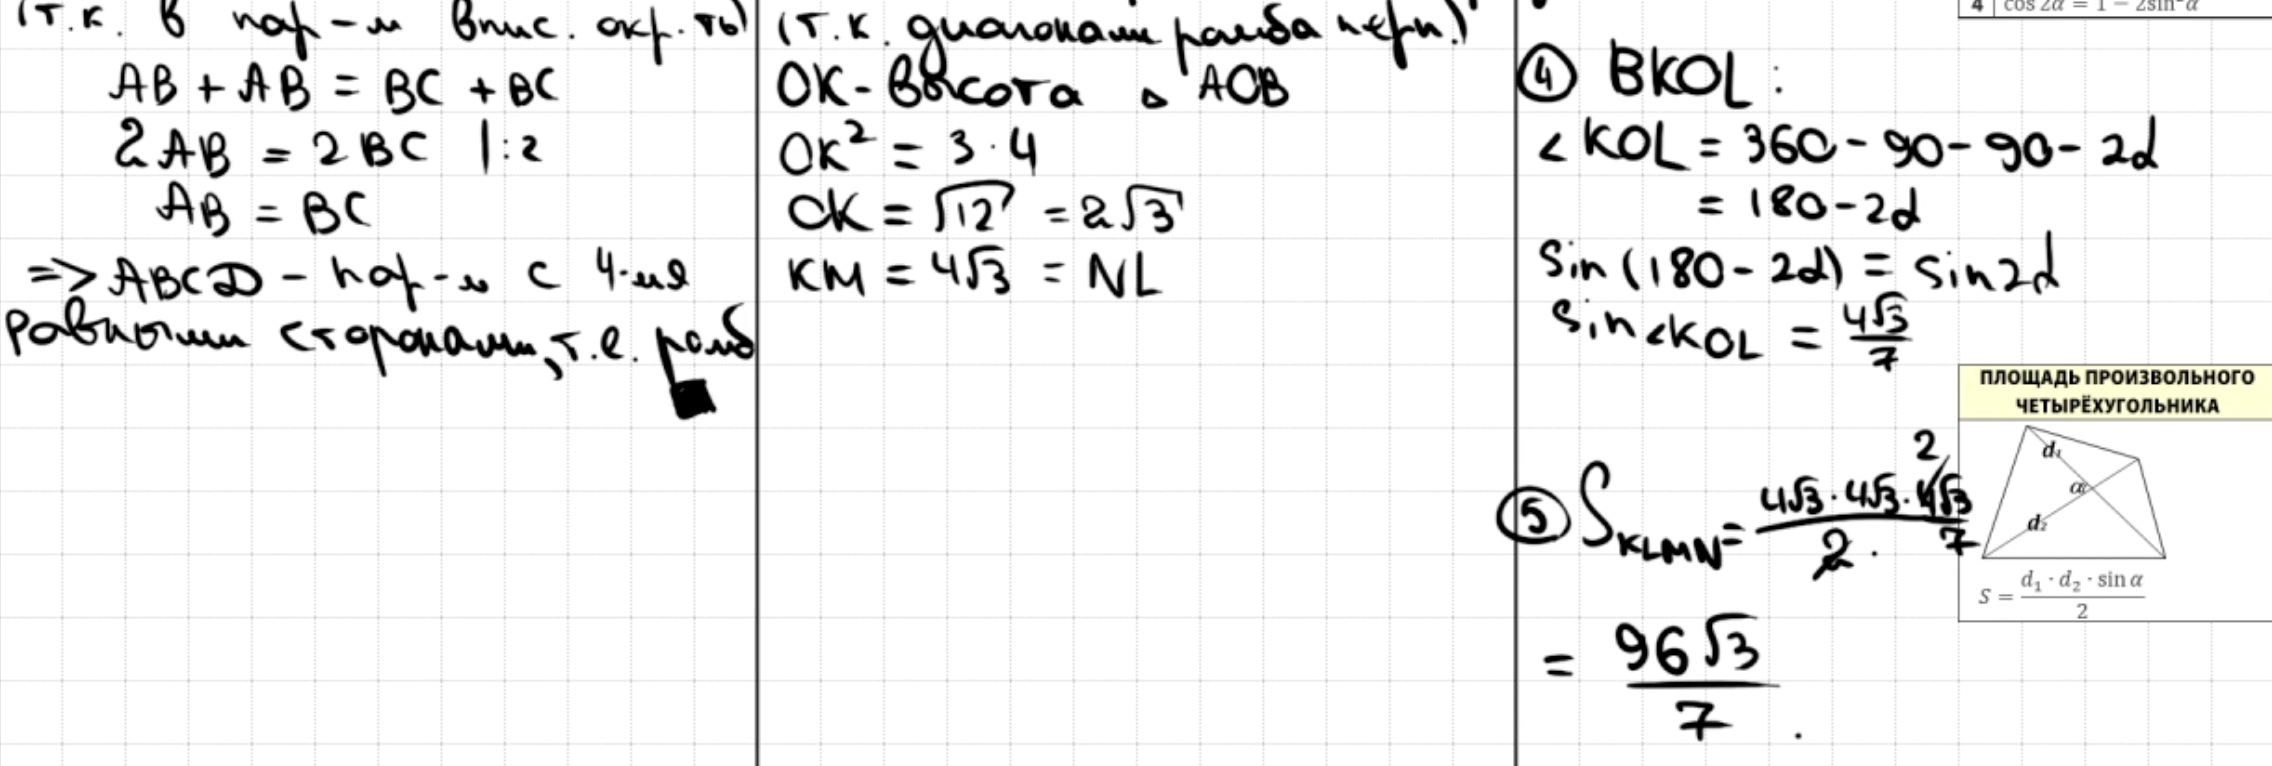 (т.к. в пар-м впис. окр.-ть)
AB + AB = BC + BC
2AB = 2BC |:2
AB = BC
=> ABCD - пар-м с 4-мя
равными сторонами, т.е. ромб
(т.к. диагонали ромба перп.)
OK - высота ▵ AOB
OK² = 3·4
OK = √12 = 2√3
KM = 4√3 = NL
4 cos 2α = 1 − 2sin²α
④ BKOL:
∠KOL = 360 - 90 - 90 - 2α
= 180 - 2α
Sin(180 - 2α) = Sin2α
Sin∠KOL = 4√3/7
⑤ S KLMN = 4√3·4√3·4√3/2·7 2
= 96√3/7.
ПЛОЩАДЬ ПРОИЗВОЛЬНОГО
ЧЕТЫРЁХУГОЛЬНИКА
d₁
α
d₂
S = d₁ · d₂ · sin α / 2